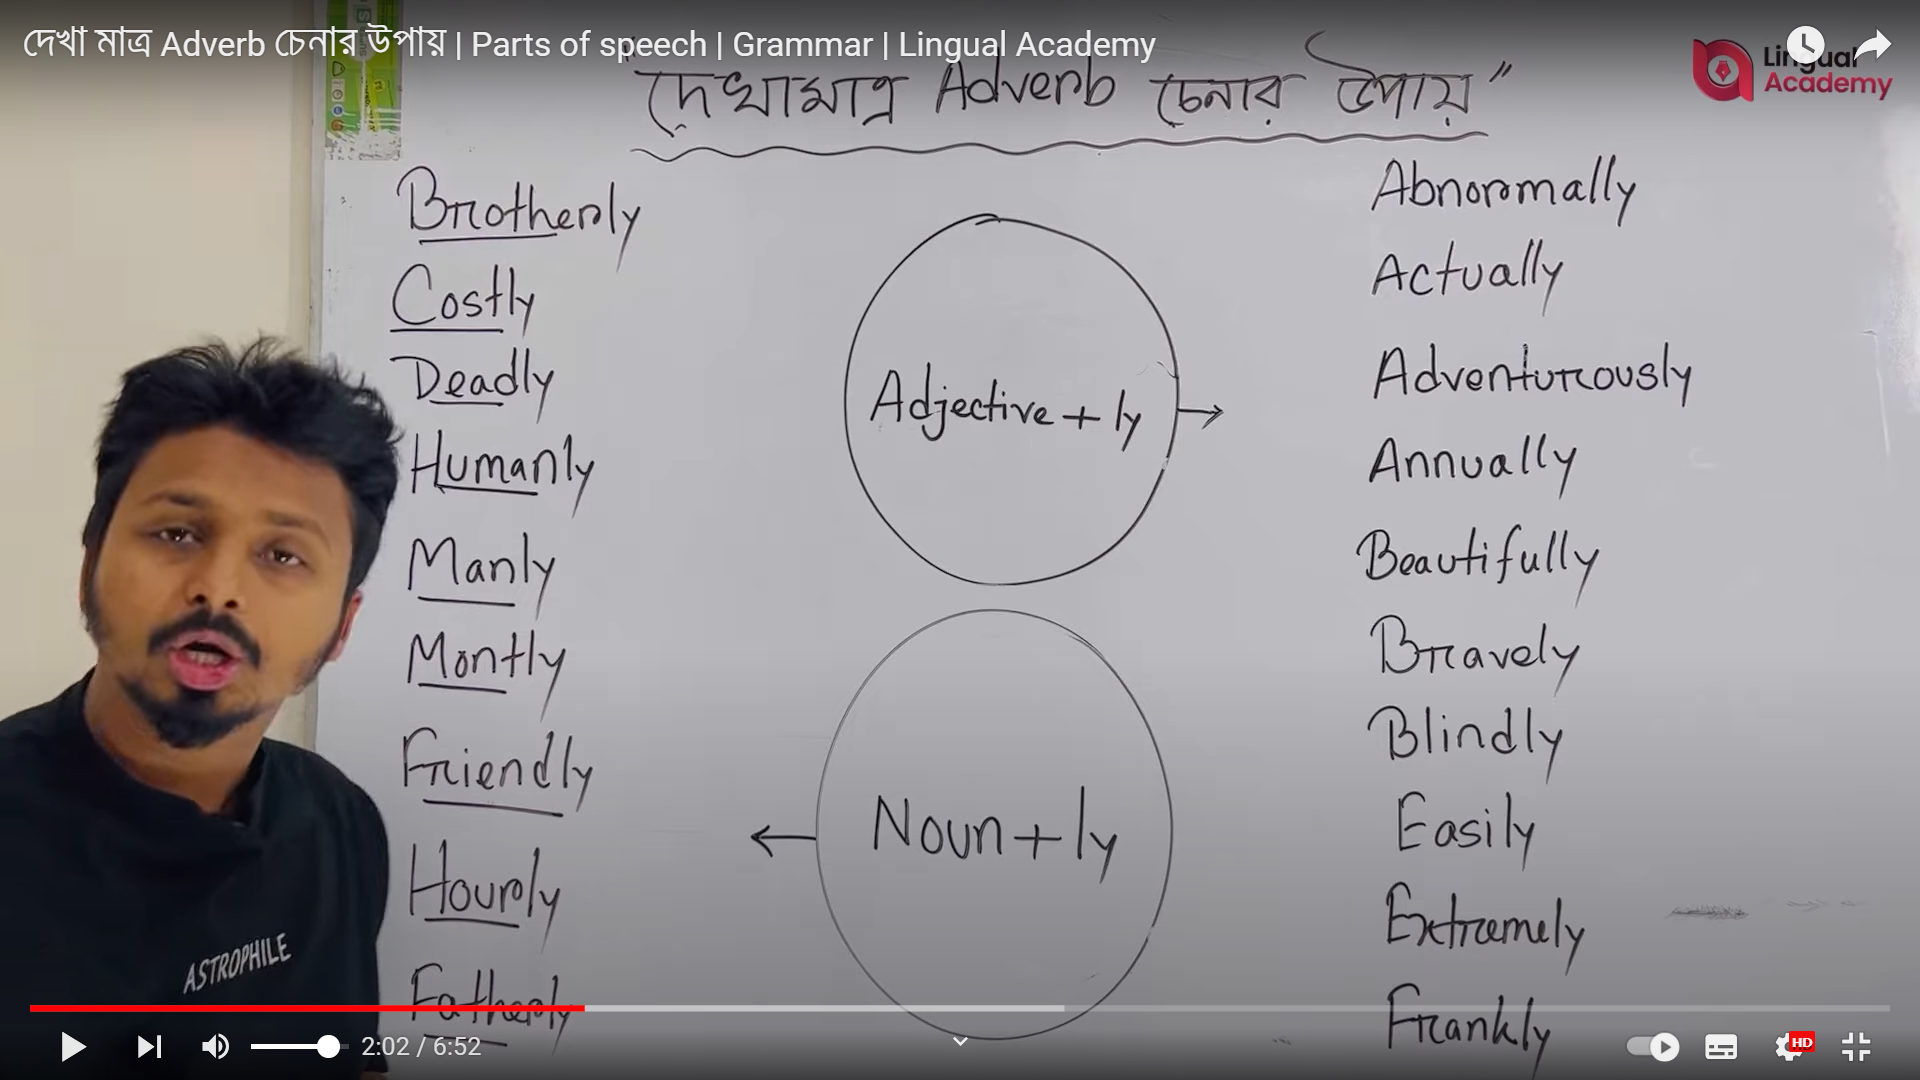 দেখা মাত্র Adverb চেনার উপায় | Parts of speech | Grammar | Lingual Academy
Lingual
Academy
"দেখামাত্র Adverb চেনার উপায়"
Brotherly
Costly
Deadly
Humanly
Manly
Montly
Friendly
Hourly
Fatherly
Adjective + ly
Noun + ly
Abnormally
Actually
Adventurously
Annually
Beautifully
Bravely
Blindly
Easily
Extremely
Frankly
ASTROPHILE
2:02 / 6:52
HD